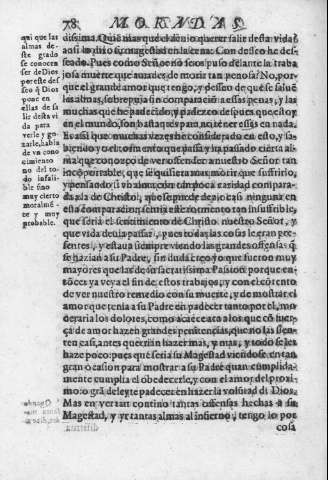 78. MORADAS
aqui que las
almas des-
te grado
se conocen
ser de Dios
por este des-
seo q̃ Dios
pone en
ellas de sa-
lir desta vi
da para
verle y go-
zarle, habla
de vn cono
cimiento
no del to-
do infali-
ble sino
muy cierto
moralmẽ-
te y muy
probable.
dissima. Quiẽ mas que el deuio querer salir desta vida?
assi lo dixo su magestad en la cena: Con desseo he des-
seado. Pues como Señor no se os puso delante la traba
josa muerte que auiades de morir tan penosa? No, por-
que el grande amor que tengo, y desseo de que se saluẽ
las almas, sobrepuja sin comparaciõ a essas penas, y las
muchas que he padecido, y padezco despues que estoy
en el mundo, son bastantes para no tener essas en nada
Es assi que muchas vezes he considerado en esto, y sa-
biendo yo el tormento que passa y ha passado cierta al-
ma que conozco de ver ofender a nuestro Señor tan
incomportable, que se quisiera mas morir que suffrirlo,
y pensando si vn alma con tan poca caridad compara-
da a la de Christo, que se puede dezir casi ninguna en
esta comparaciõ, sentia este tormento tan insuffrible,
que seria el sentimiento de Christo nuestro Señor, y
que vida deuia passar, pues todas las cosas le eran pre-
sentes, y estaua siempre viendo las grandes offensas q̃
se hazian a su Padre, sin duda creo yo que fueron muy
mayores que las de su sacratissima Passion: porque en-
tõces ya veya el fin de estos trabajos, y con el cõtento
de ver nuestro remedio con su muerte, y de mostrar el
amor que tenia a su Padre en padecer tanto por el, mo
deraria los dolores, como acaece aca a los que cõ fuer-
ça de amor hazen grandes penitencias, que no las sien-
ten casi, antes querriã hazer mas, y mas, y todo se les
haze poco: pues què seria su Magestad viendose en tan
gran ocasion para mostrar a su Padre quan cumplida-
mente cumplia el obedecerle, y con el amor del proxi-
mo: o grã deleyte padecer en hazer la volũtad de Dios
Mas en ver tan contino tantas offensas hechas a su
Magestad, y yr tantas almas al infierno, tengo lo por
cosa